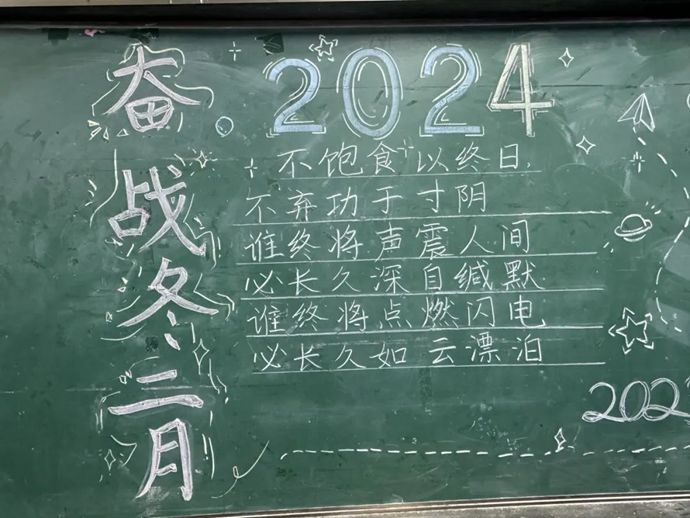 奋战冬二月
2024
不饱食以终日,
不弃功于寸阴
谁终将声震人间
必长久深自缄默
谁终将点燃闪电
必长久如云漂泊
202